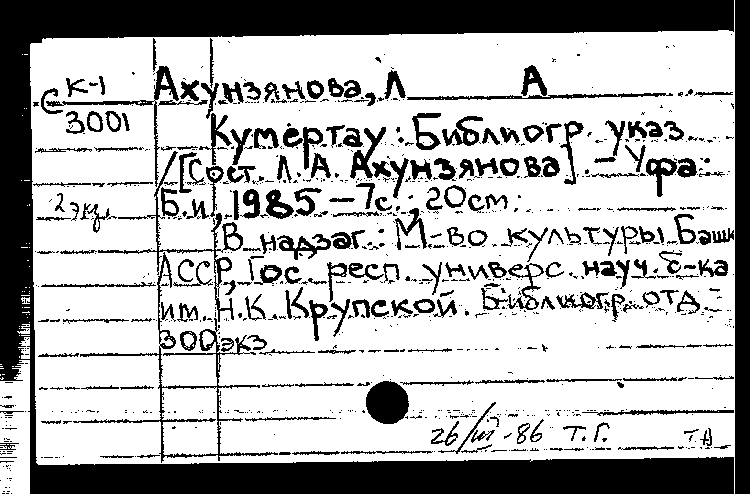 С К-1
3001
Ахунзянова, Л А
Кумертау: Библиогр. указ.
/[Сост. Л. А. Ахунзянова]. – Уфа:
2 экз.
Б.и., 1985. – 7с.; 20см.
В надзаг.: М-во культуры Башк
АССР, Гос. респ. универс. науч. б-ка
им. Н.К. Крупской. Библиогр. отд. –
300 экз
26/III-86 Т.Г.